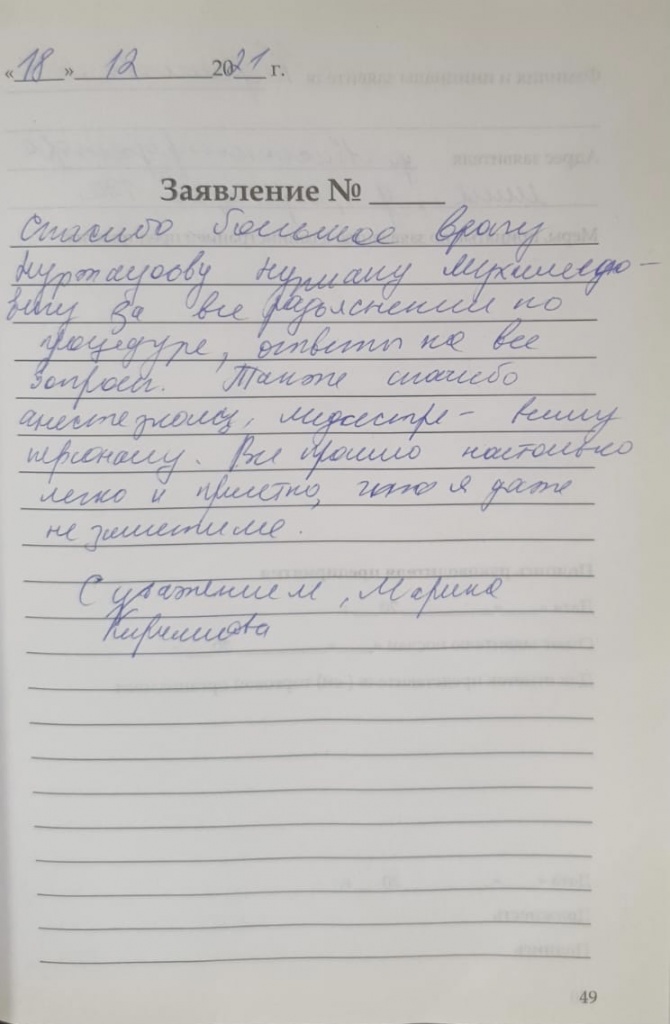 «18» 12 2021 г.
Заявление № ____
Спасибо большое врачу
Нурману Мухамедо-
вичу за все разъяснения по
процедуре, ответы на все
вопросы. Также спасибо
анестезиологу, медсестре - всему
персоналу. Все прошло настолько
легко и приятно, что я даже
не заметила.
С уважением, Марина
Кириллова
49